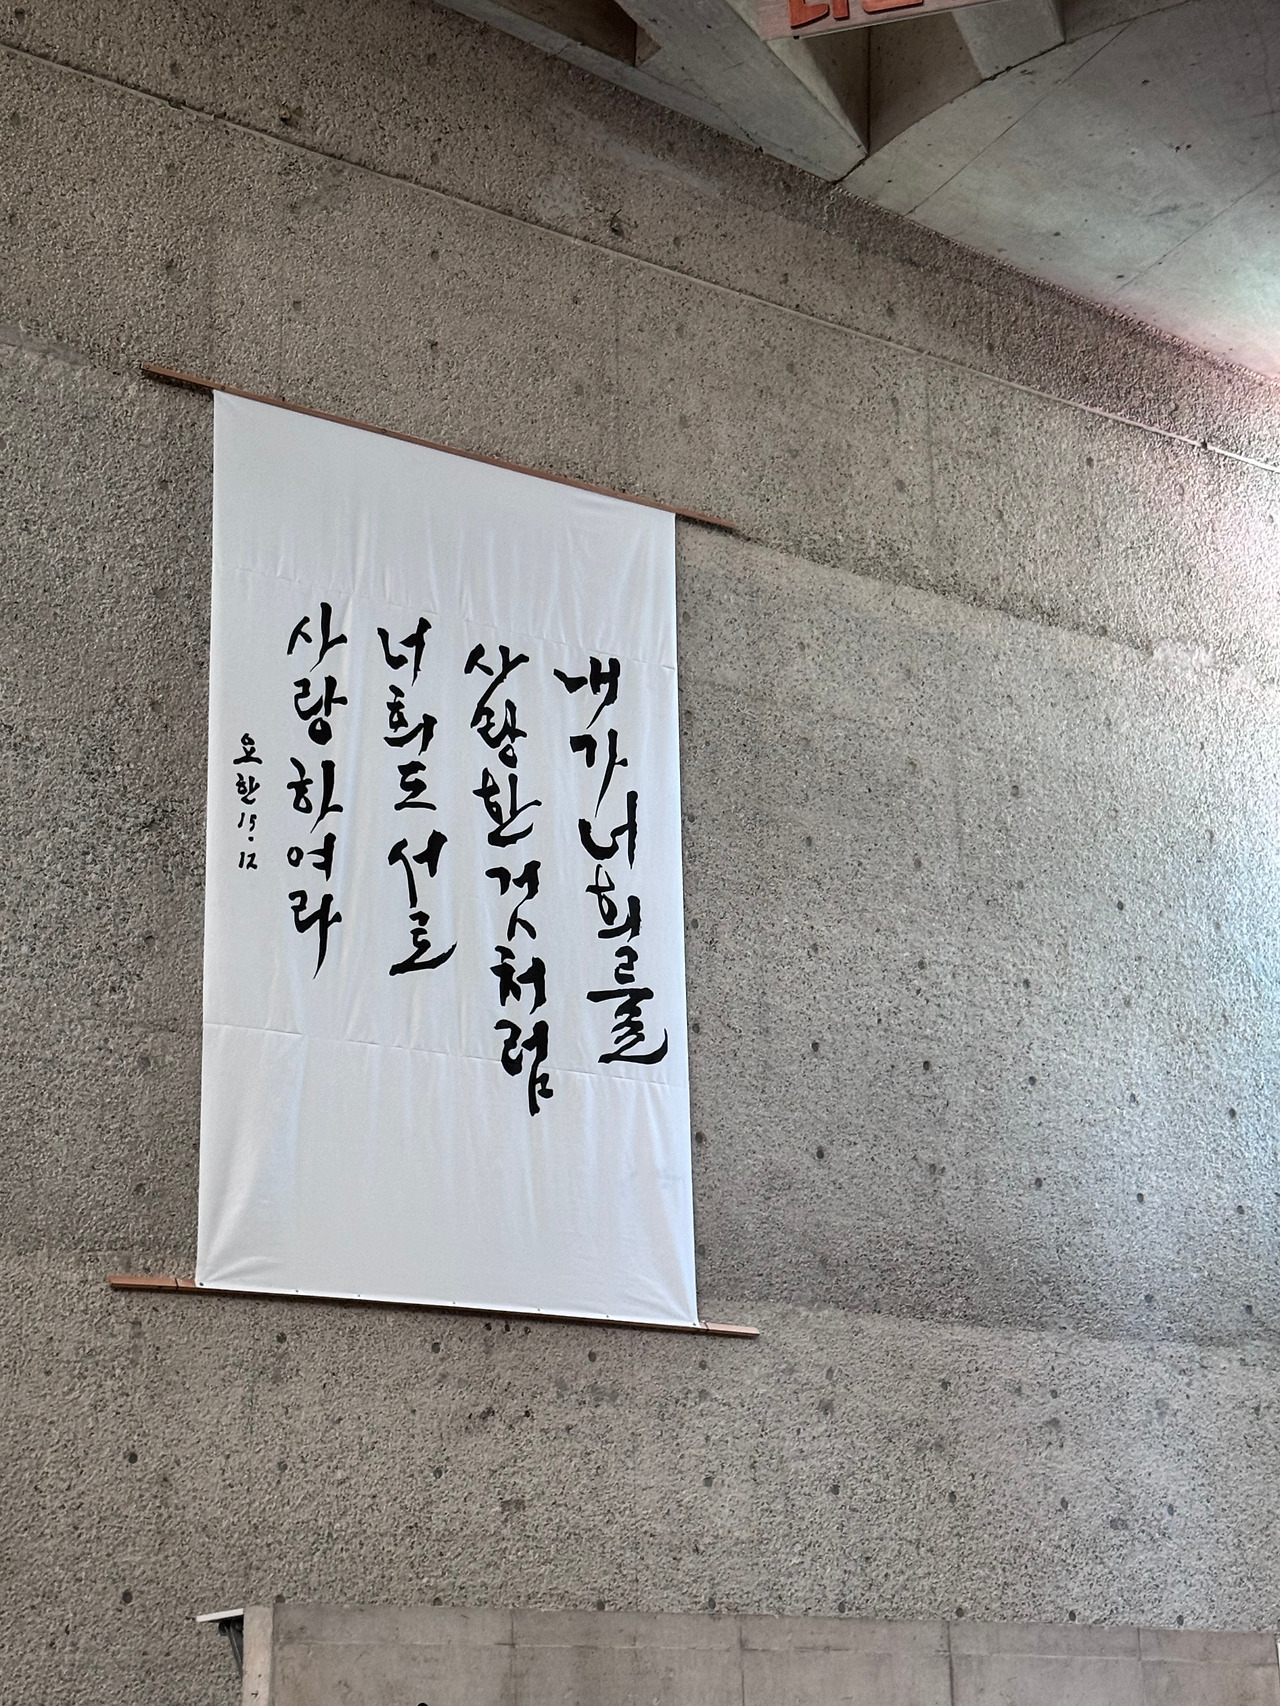 내가너희를
사랑한것처럼
너희도서로
사랑하여라
요한 15.12